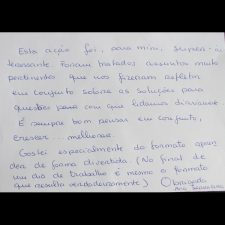 Esta ação foi, para mim, super in-
teressante. Foram tratados assuntos muito
pertinentes que nos fizeram refletir
em conjunto sobre as soluções para
questões para com que lidamos diariamente
É sempre bom pensar em conjunto,
crescer... melhorar.
Gostei especialmente do formato apren-
der de forma divertida. (No final de
um dia de trabalho é mesmo o formato
que resulta verdadeiramente) Obrigada